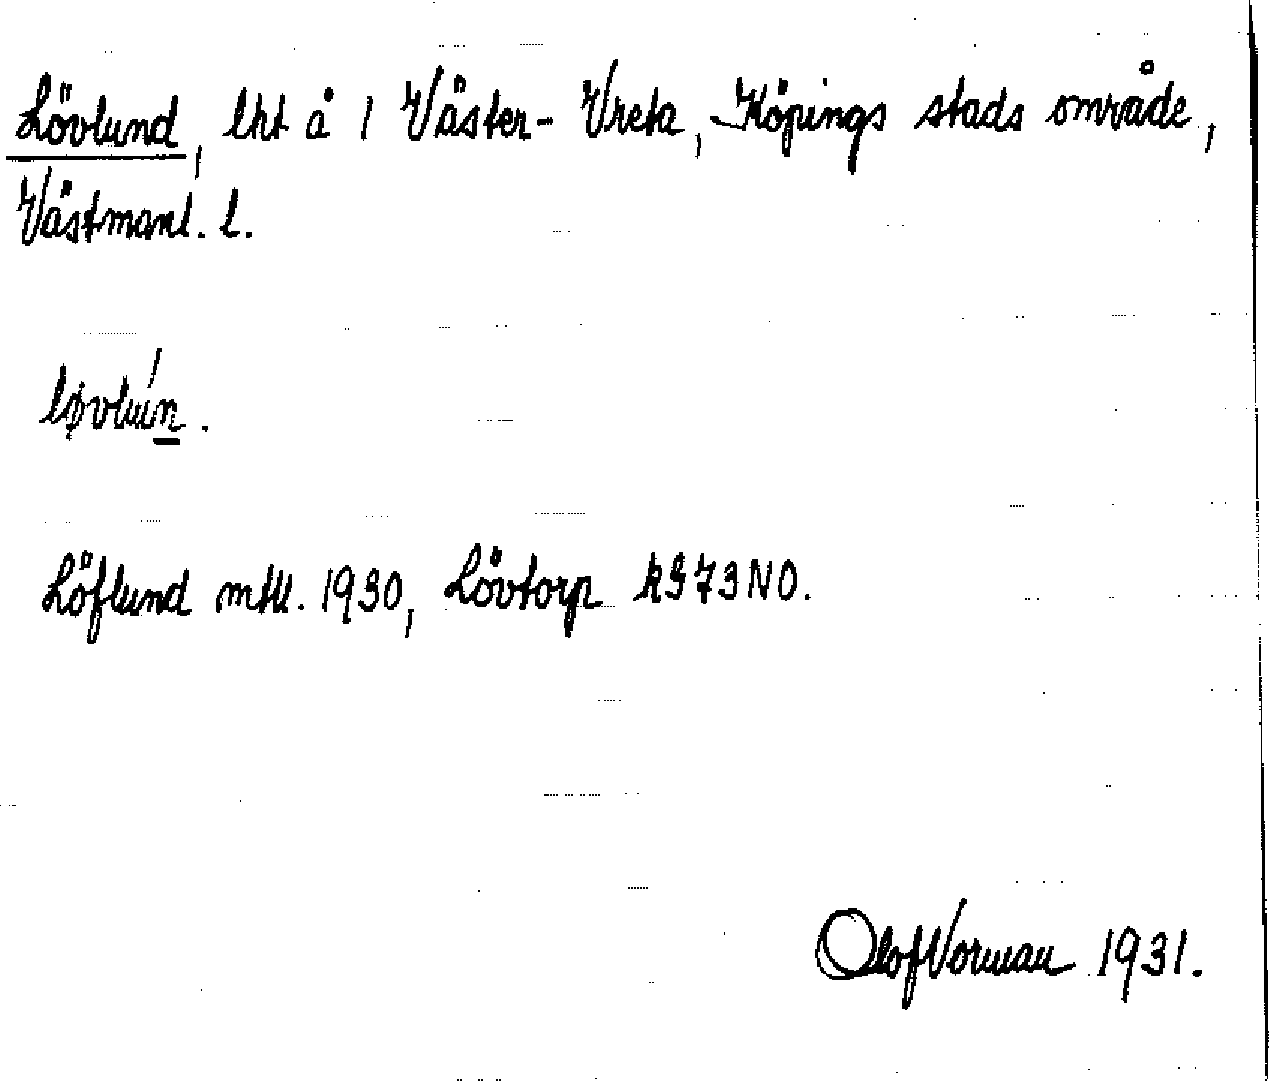 Lövlund, lht å 1 Väster-Vreta, Köpings stads område,
Västmanl. l.
løvlún.
Löflund mtl. 1930, Lövtorp RG73NO.
Olof Vorman 1931.